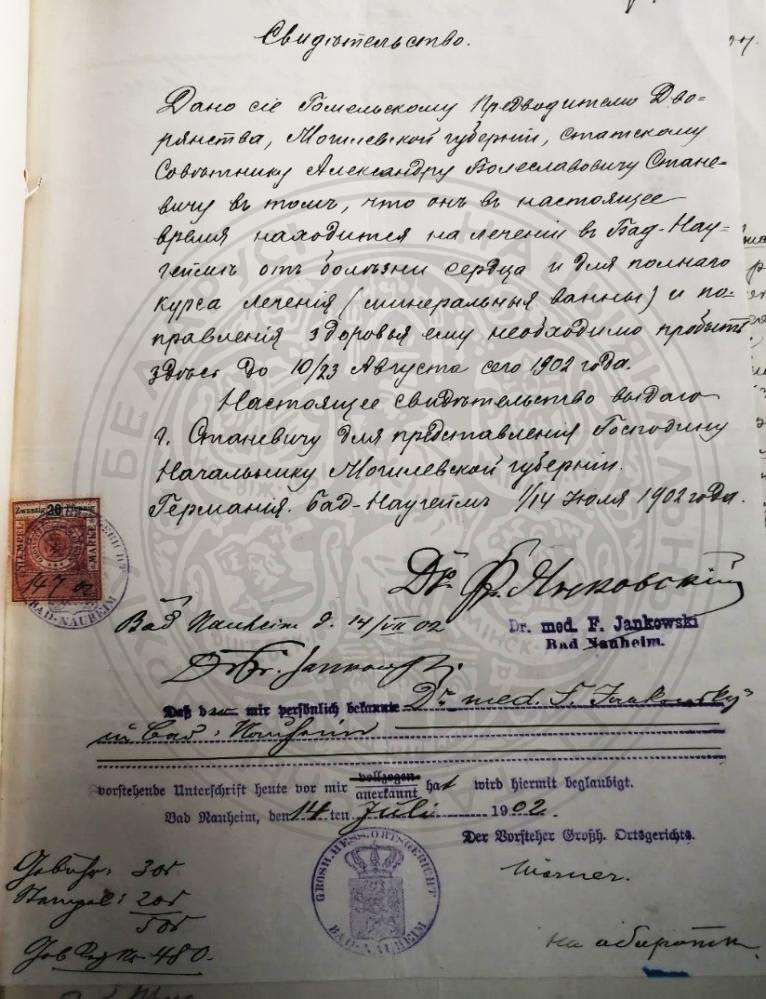 Свидѣтельство.
Дано сіе Гомельскому Предводителю Дво-
рянства, Могилевской губерніи, статскому
Совѣтнику Александру Болеславовичу Стане-
вичу въ томъ, что онъ въ настоящее
время находится на леченіи въ Бад-Нау-
геймѣ отъ болѣзни сердца и для полнаго
курса леченія (минеральныя ванны) и по-
правленія здоровья ему необходимо пробыть
здѣсь до 10/23 Августа сего 1902 года.
Настоящее свидѣтельство выдаю
г. Станевичу для представленія Господину
Начальнику Могилевской губерніи.
Германія. Бад-Наугеймъ 1/14 Июля 1902 года.
Zwanzig 20 Pfennig
STEMPEL MARKE
14 7 02
BAD-NAUHEIM
Dr. Ф. Янковскій
Bad Nauheim d. 14/VII 02
Dr. med. F. Jankowski
Bad Nauheim.
Dr Fr. Jankowski.
Daß der mir persönlich bekannte Dr. med. F. Jankowsky
in Bad-Nauheim
vorstehende Unterschrift heute vor mir vollzogen anerkannt hat wird hiermit beglaubigt.
Bad Nauheim, den 14 ten Juli 1902.
Der Vorsteher Großh. Ortsgerichts.
GROSH. HESS. ORTSGERICHT
BAD-NAUHEIM
Gebühr: 30₰
Stempel: 20₰
50₰
Geb Reg Nr 480.
на абароте